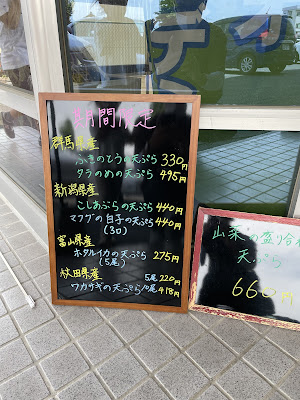 期間限定
群馬県産
ふきのとうの天ぷら 330円
タラのめの天ぷら 495円
新潟県産
こしあぶらの天ぷら 440円
マフグの白子の天ぷら 440円
(3コ)
富山県産
ホタルイカの天ぷら 275円
(5尾)
秋田県産 5尾 220円
ワカサギの天ぷら 10尾 418円
山菜の盛り合
天ぷら
660円